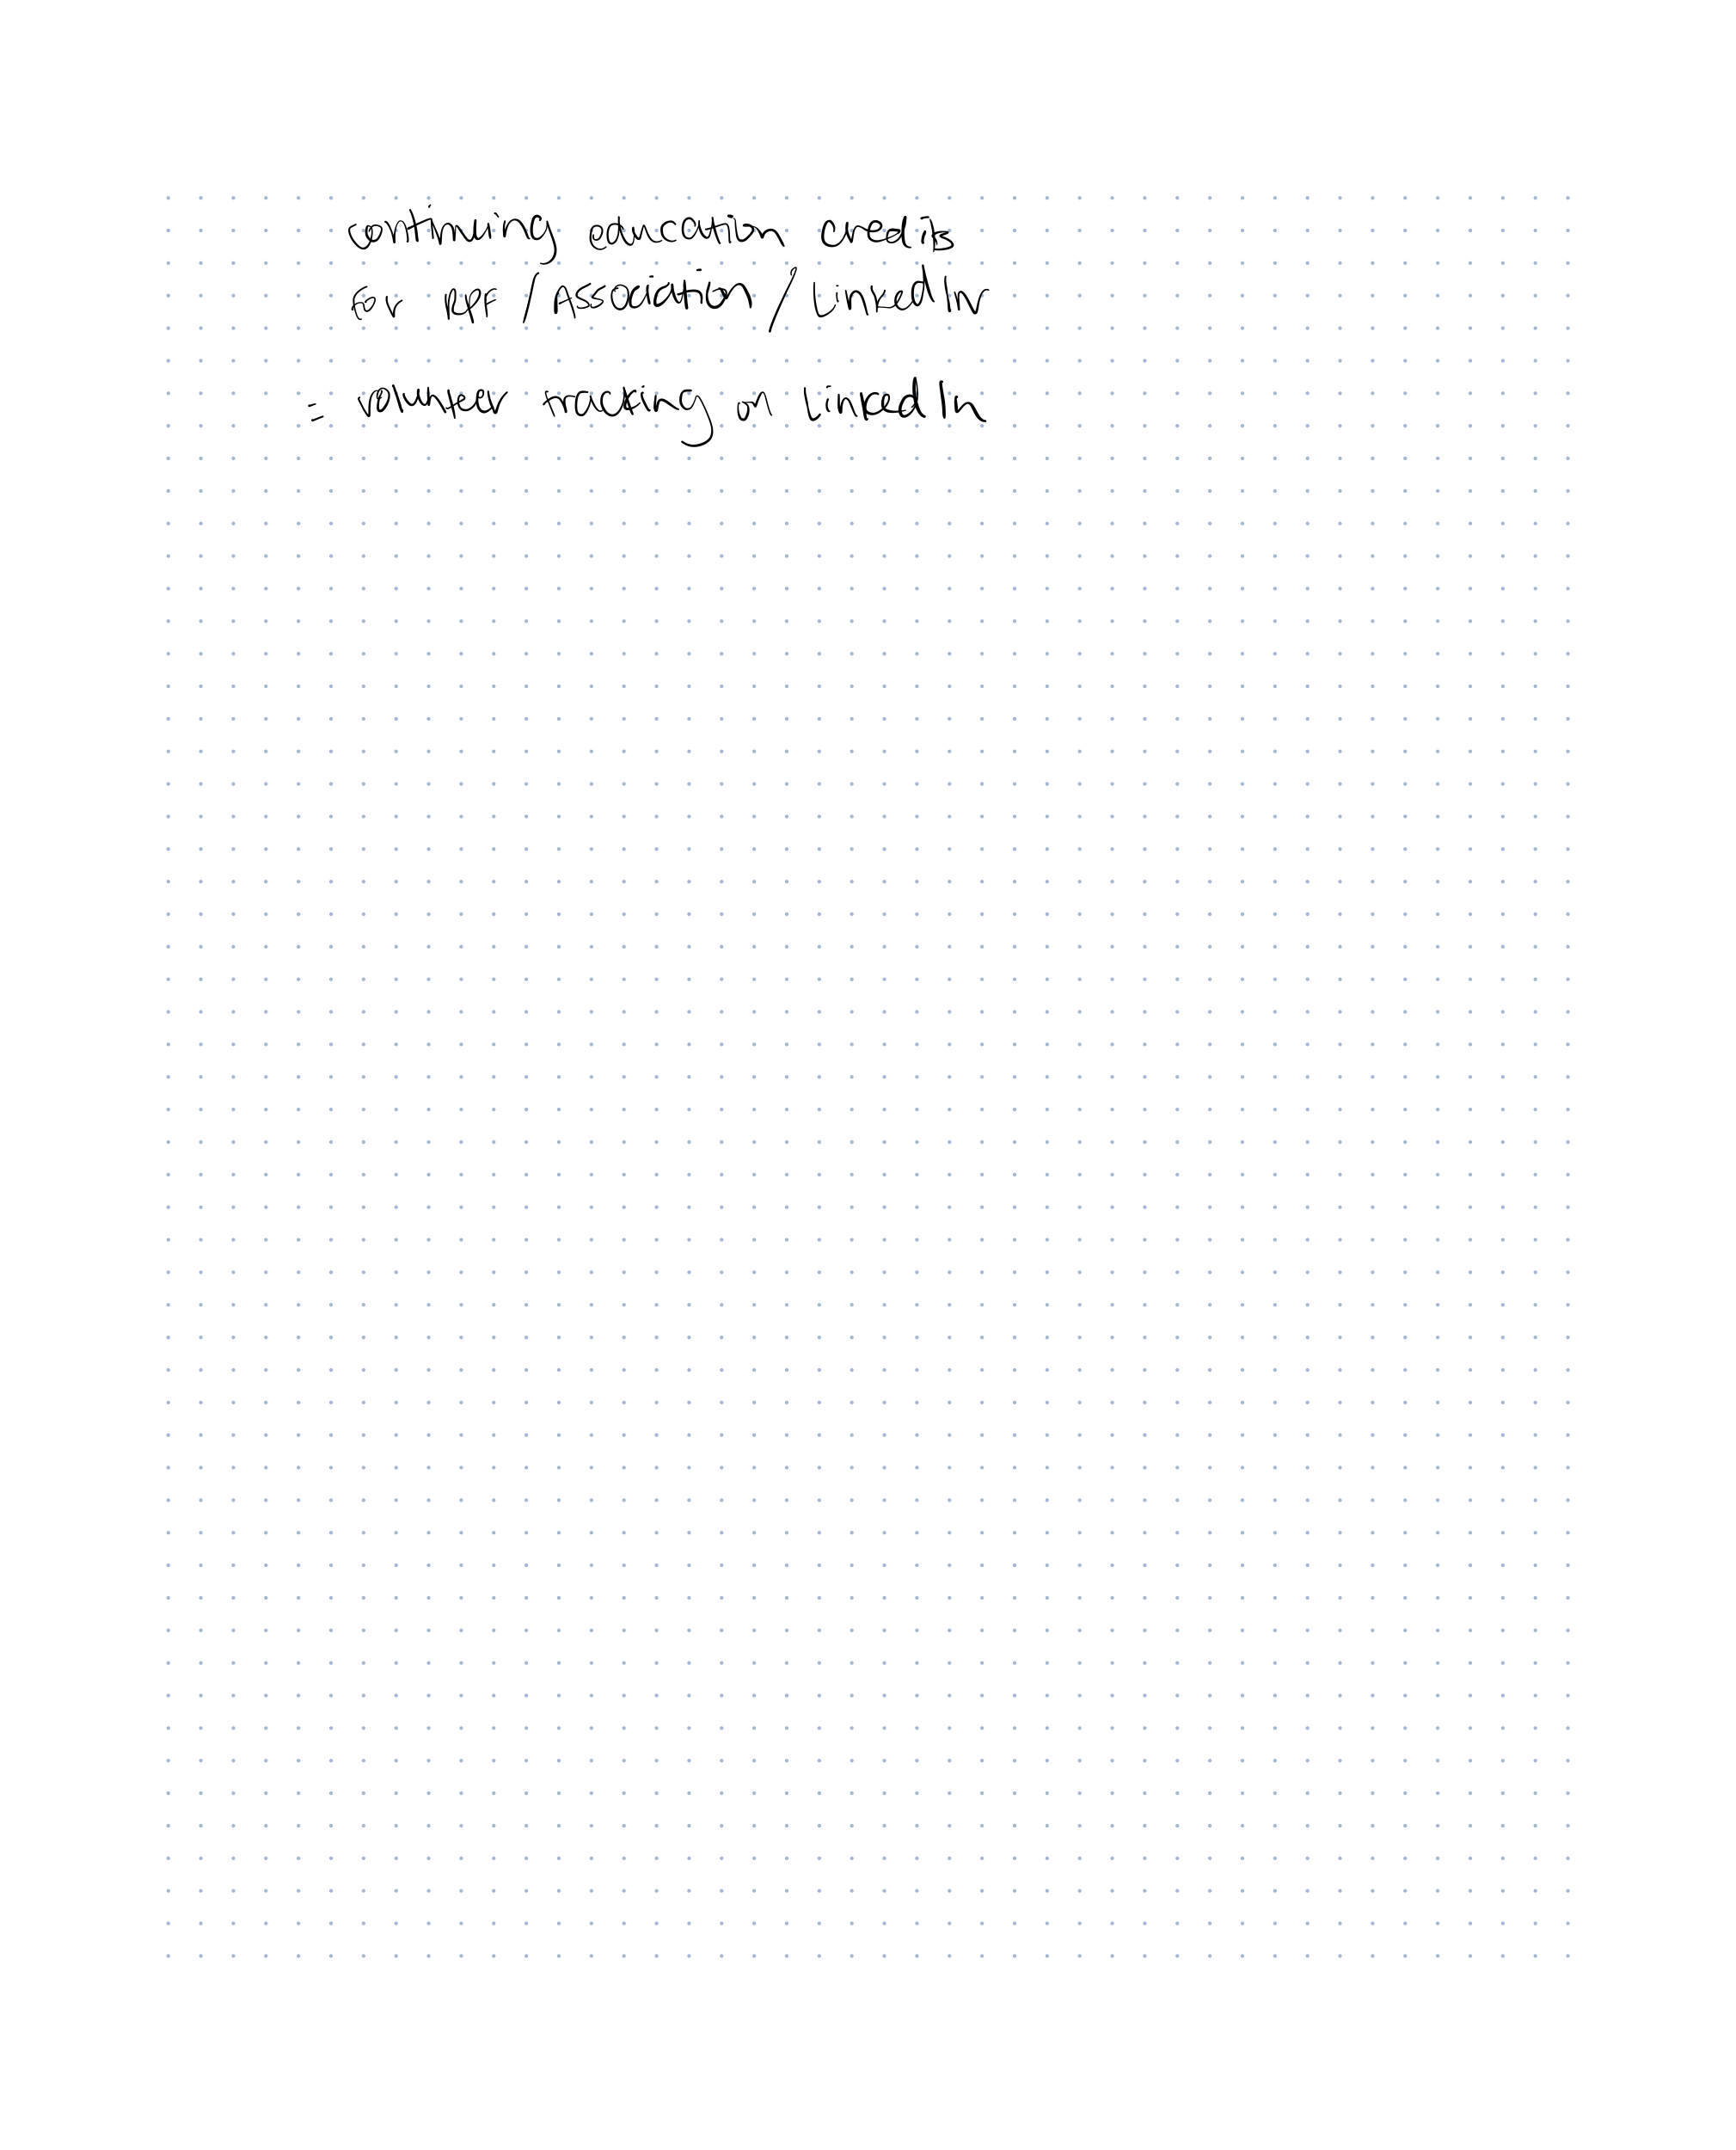 continuing education credits
for RPF / Association / LinkedIn
= volunteer tracking on LinkedIn